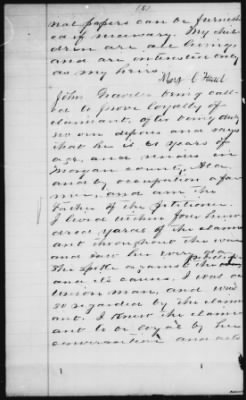 (6)
nal papers can be furnish
ed if necessary. My chil
dren are all living,
and are interested only
as my heirs.
Mary C Head
John being call
ed to prove loyalty of
claimant, after being duly
sworn deposes and says
that he is 61 years of
age, and resides in
Morgan county, Ala
and by occupation a far
mer, and am the
Father of the petitioner.
I lived within four hun
dred yards of the claim
ant throughout the war
and saw her every day
She spoke against the
and its cause. I was a
Union man, and was
so regarded by the claim
ant. I knew the claim
ant to be loyal by her
conversation and acts